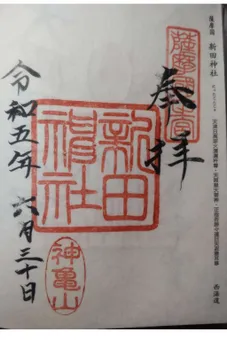 薩摩國 新田神社
薩摩國一宮
奉拝
新田
神社
神亀山
令和五年 六月三十日
西海道